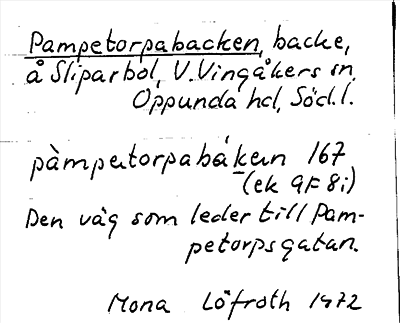 Pampetorpabacken, backe,
å Sliparbol, V. Vingåkers sn,
Oppunda hd, Södl.
pàmpetorpabáken 167
(ek 9F 8i)
Den väg som leder till Pam-
petorpsgatan.
Mona Löfroth 1972